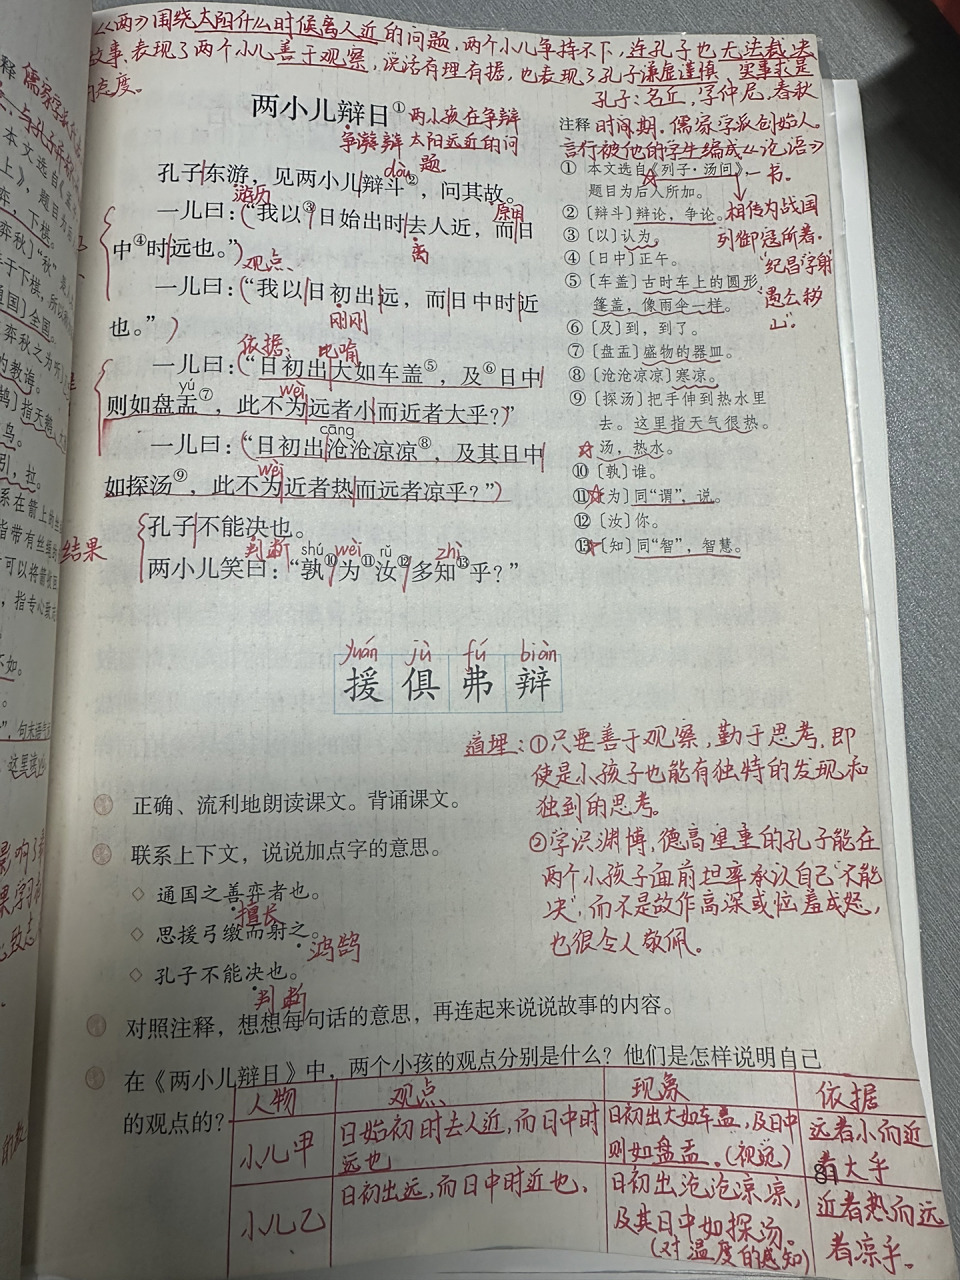 《两》围绕太阳什么时候离人近的问题,两个小儿争持不下,连孔子也无法裁决
故事,表现了两个小儿善于观察,说话有理有据,也表现了孔子谦虚谨慎、实事求是
的态度。
孔子:名丘,字仲尼,春秋
两小儿辩日①
两小孩在争辩
争辩 太阳远近的问
题。
注释 时期。儒家学派创始人。
言行被他的学生编成《论语》
dòu
孔子东游,见两小儿辩斗②,问其故。
游历 原因
一儿曰:“我以③日始出时去人近,而日
中④时远也。”
观点 离
一儿曰:“我以日初出远,而日中时近
也。”
刚刚
依据、比喻
一儿曰:“日初出大如车盖⑤,及⑥日中
yú wèi
则如盘盂⑦,此不为远者小而近者大乎?”
cāng
一儿曰:“日初出沧沧凉凉⑧,及其日中
wèi
如探汤⑨,此不为近者热而远者凉乎?”
孔子不能决也。
结果 判断 shú wèi rǔ zhì
两小儿笑曰:“孰⑩为⑪汝⑫多知⑬乎?”
① 本文选自《列子·汤问》。
题目为后人所加。
一书。
② 〔辩斗〕辩论,争论。
相传为战国
③ 〔以〕认为。
列御寇所著。
④ 〔日中〕正午。
“纪昌学射”
⑤ 〔车盖〕古时车上的圆形
篷盖,像雨伞一样。
“愚公移
山”。
⑥ 〔及〕到,到了。
⑦ 〔盘盂〕盛物的器皿。
⑧ 〔沧沧凉凉〕寒凉。
⑨ 〔探汤〕把手伸到热水里
去。这里指天气很热。
汤,热水。
⑩ 〔孰〕谁。
⑪ 〔为〕同“谓”,说。
⑫ 〔汝〕你。
⑬ 〔知〕同“智”,智慧。
yuán jù fú biàn
援 俱 弗 辩
道理:①只要善于观察,勤于思考,即
使是小孩子也能有独特的发现和
独到的思考。
②学识渊博,德高望重的孔子能在
两个小孩子面前坦率承认自己“不能
决”,而不是故作高深或恼羞成怒,
也很令人敬佩。
正确、流利地朗读课文。背诵课文。
联系上下文,说说加点字的意思。
◇ 通国之善弈者也。
擅长
◇ 思援弓缴而射之。
鸿鹄
◇ 孔子不能决也。
判断
对照注释,想想每句话的意思,再连起来说说故事的内容。
在《两小儿辩日》中,两个小孩的观点分别是什么?他们是怎样说明自己
的观点的?
人物 观点 现象 依据
小儿甲 日始初时去人近,而日中时
远也
日初出大如车盖,及日中
则如盘盂。(视觉)
远者小而近
者大乎
81
小儿乙 日初出远,而日中时近也、
日初出沧沧凉凉,
及其日中如探汤。
(对温度的感知)
近者热而远
者凉乎。